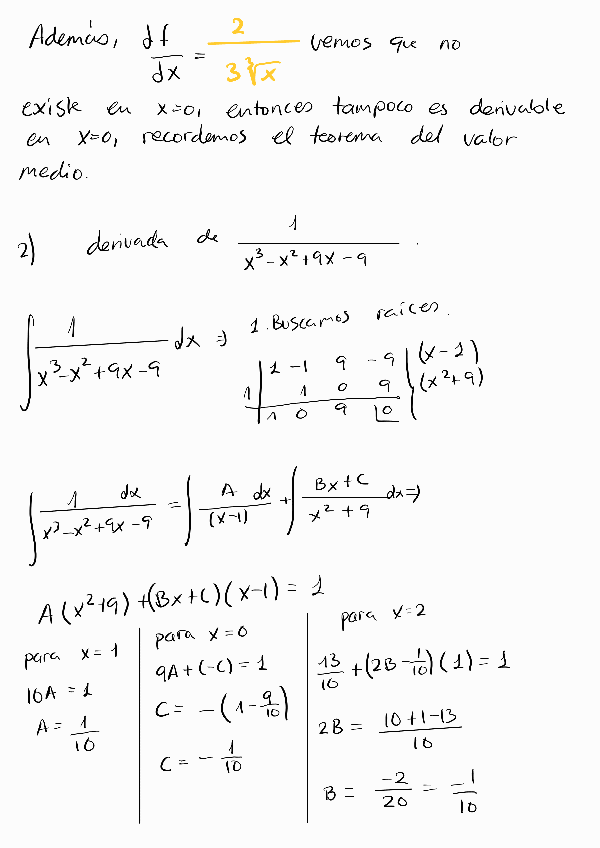 Además, df/dx = 2/(3∛x) vemos que no
existe en x=0, entonces tampoco es derivable
en x=0, recordemos el teorema del valor
medio.
2) derivada de 1/(x³-x²+9x-9).
∫ 1/(x³-x²+9x-9) dx ⇒ 1. Buscamos raíces.
1 -1 9 -9 (x-1)
1 1 0 9 (x²+9)
1 0 9 0
∫ 1 dx/(x³-x²+9x-9) = ∫ A dx/(x-1) + ∫ (Bx+C)/(x²+9) dx ⇒
A(x²+9)+(Bx+C)(x-1) = 1
para x=1
10A = 1
A = 1/10
para x=0
9A+(-C)=1
C = -(1-9/10)
C = -1/10
para x=2
13/10+(2B-1/10)(1)=1
2B = (10+1-13)/10
B = -2/20 = -1/10